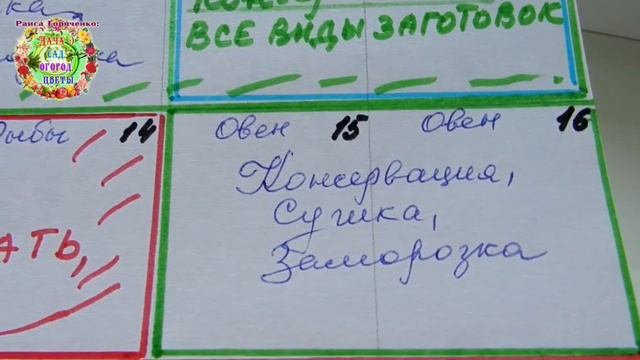 Раиса Горяченко:
ДАЧА
САД
ОГОРОД
ЦВЕТЫ
ВСЕ ВИДЫ ЗАГОТОВОК
14
Овен 15 Овен 16
Консервация,
Сушка,
Заморозка